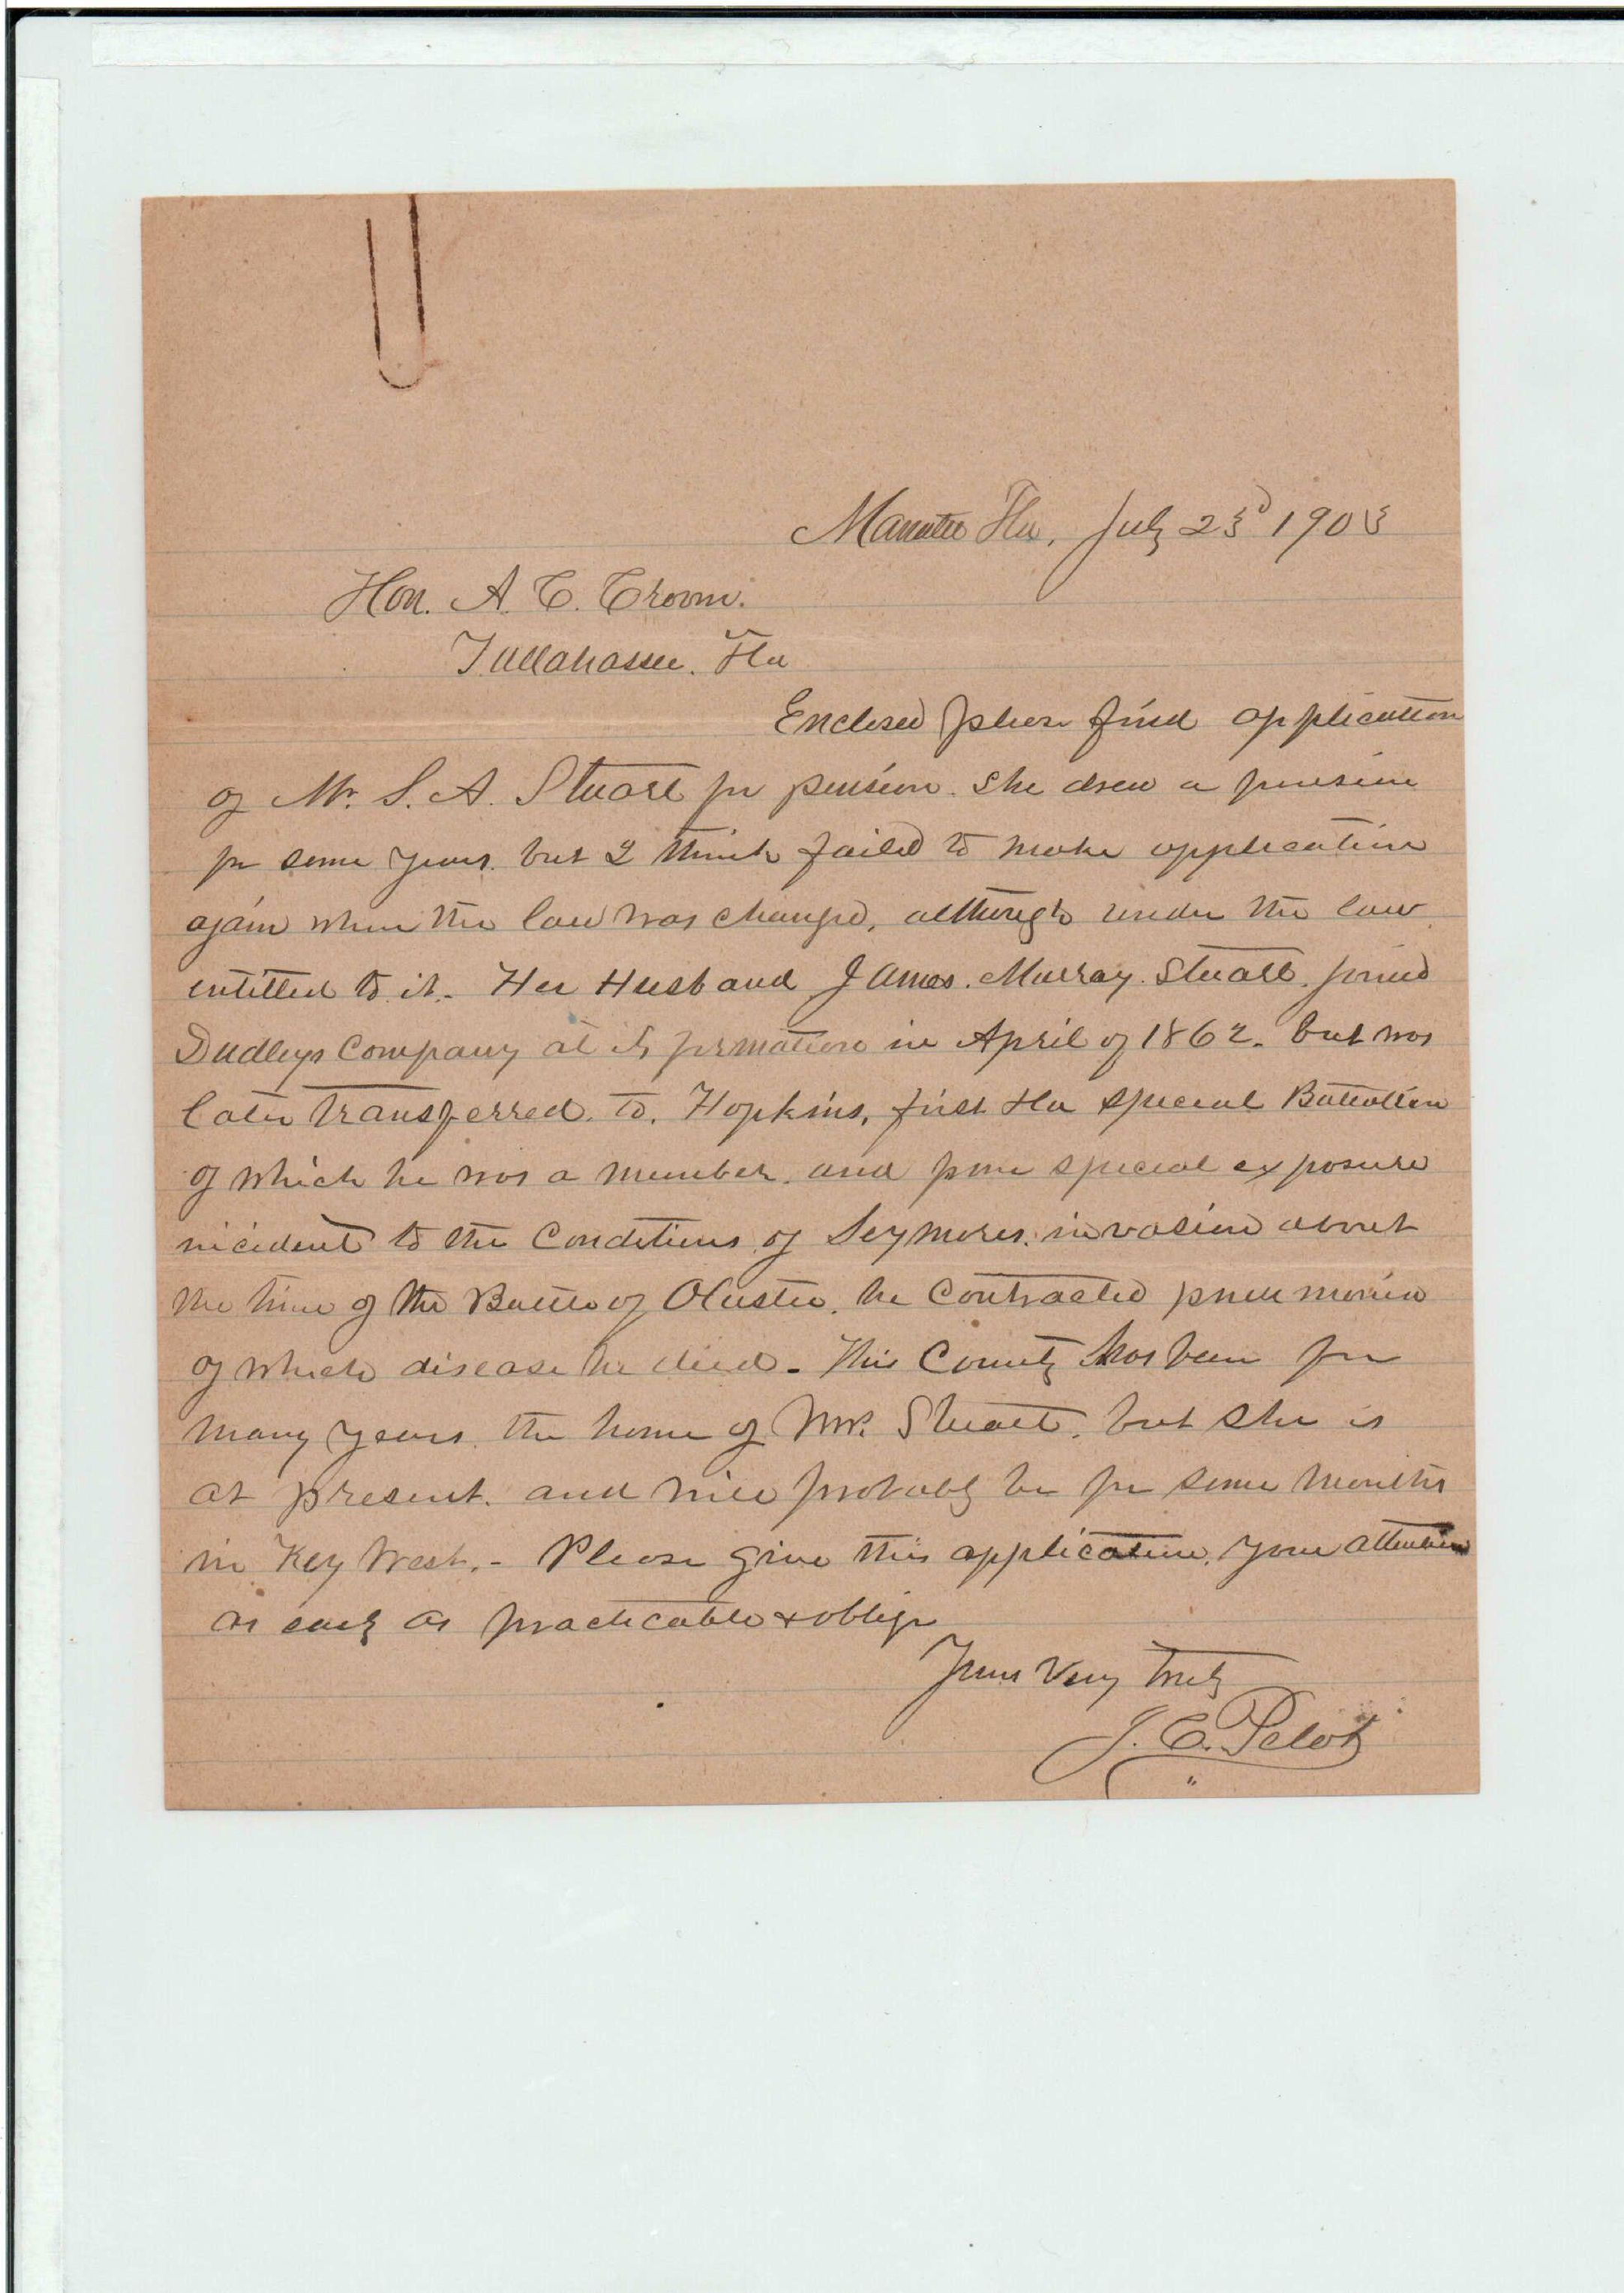 Manatee Fla, July 23d 1903
Hon. A. C. Croom.
Tallahassee. Fla
Enclosed please find application
of Mrs. S. A. Stuart for pension. She drew a pension
for some years. but I think failed to make application
again when the law was changed, although under the law
entitled to it. - Her Husband James. Murray. Stuart. joined
Dudleys Company at its formation in April of 1862. but was
later transferred. to. Hopkins, first Fla special Battallion
of which he was a member. and from special exposure
incident to the Conditions of Seymores. invasion about
the time of the Battle of Olustee. he Contracted pneumonia
of which disease he died - This County has been for
many years the home of Mrs. Stuart, but she is
at present. and will probably be for some months
in Key West. - Please give this application. your attention
as early as practicable & oblige
Yours Very truly
J. C. Pelot